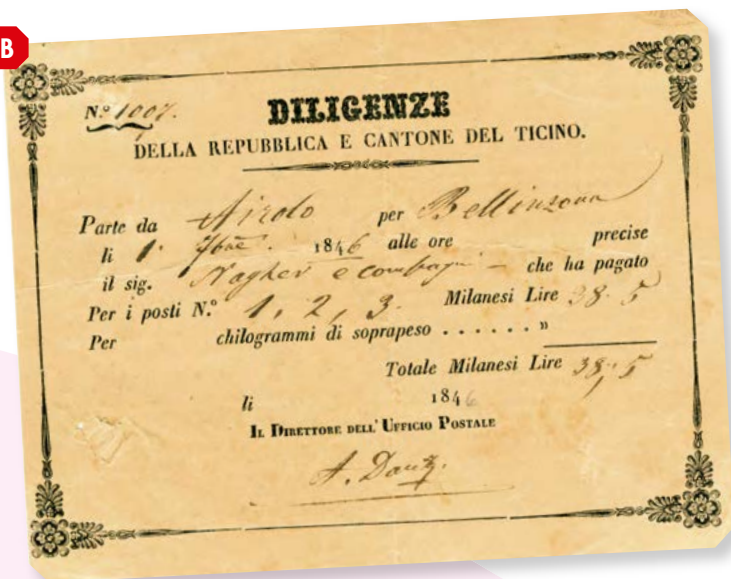 B
N.º 1007.
DILIGENZE
DELLA REPUBBLICA E CANTONE DEL TICINO.
Parte da Airolo per Bellinzona
li 1. 7bre. 1846 alle ore precise
il sig. Nagher e compagni — che ha pagato
Per i posti N.º 1, 2, 3. Milanesi Lire 38. 5
Per chilogrammi di soprapeso . . . . . . »
Totale Milanesi Lire 38. 5
li 1846
IL DIRETTORE DELL' UFFICIO POSTALE